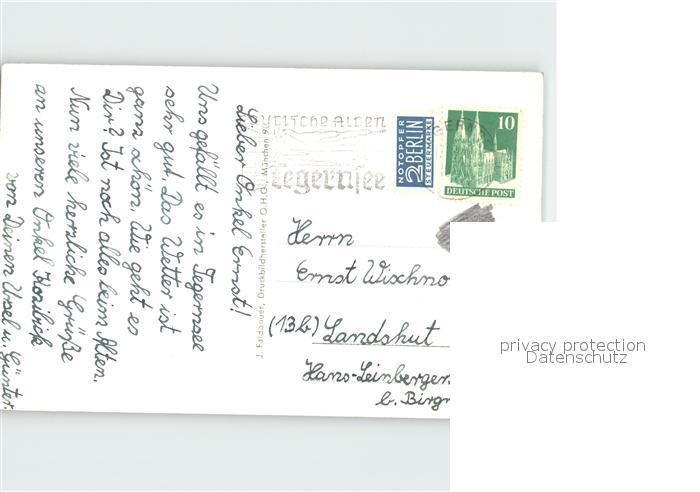 Lieber Onkel Ernst!
Uns gefällt es in Tegernsee
sehr gut. Das Wetter ist
ganz schön. Wie geht es
Dir? Ist noch alles beim Alten.
Nun viele herzliche Grüße
an unseren Onkel
von Deinen Ursel u. Günter.
J. Faldbauer, Druckbildhersteller O.H.G., München 9
yrische Alpen
Tegernsee
NOTOPFER
2 BERLIN
STEUERMARKE
10
DEUTSCHE POST
Herrn
Ernst Wischno
(13b) Landshut
Hans-Leinberger
b. Birgm
privacy protection
Datenschutz